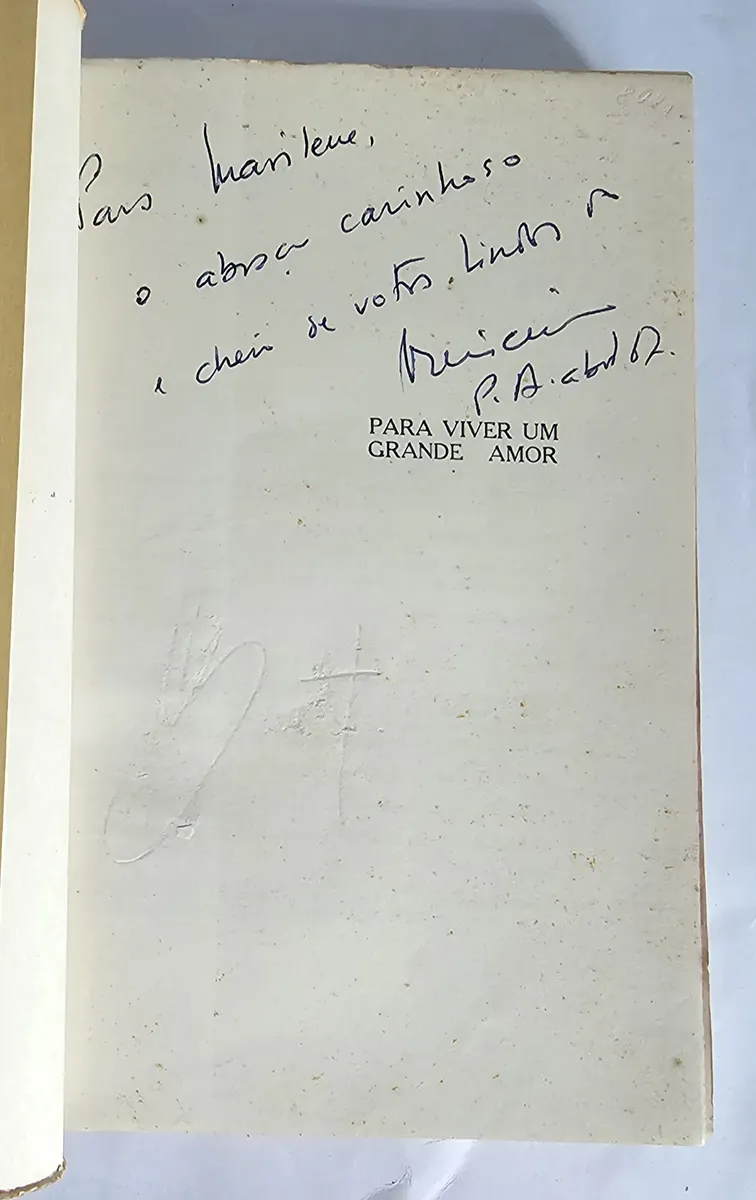 Para Marilene,
o abraço carinhoso
e cheio de votos lindos do
Vinicius
P. A. abril 67.
PARA VIVER UM
GRANDE AMOR